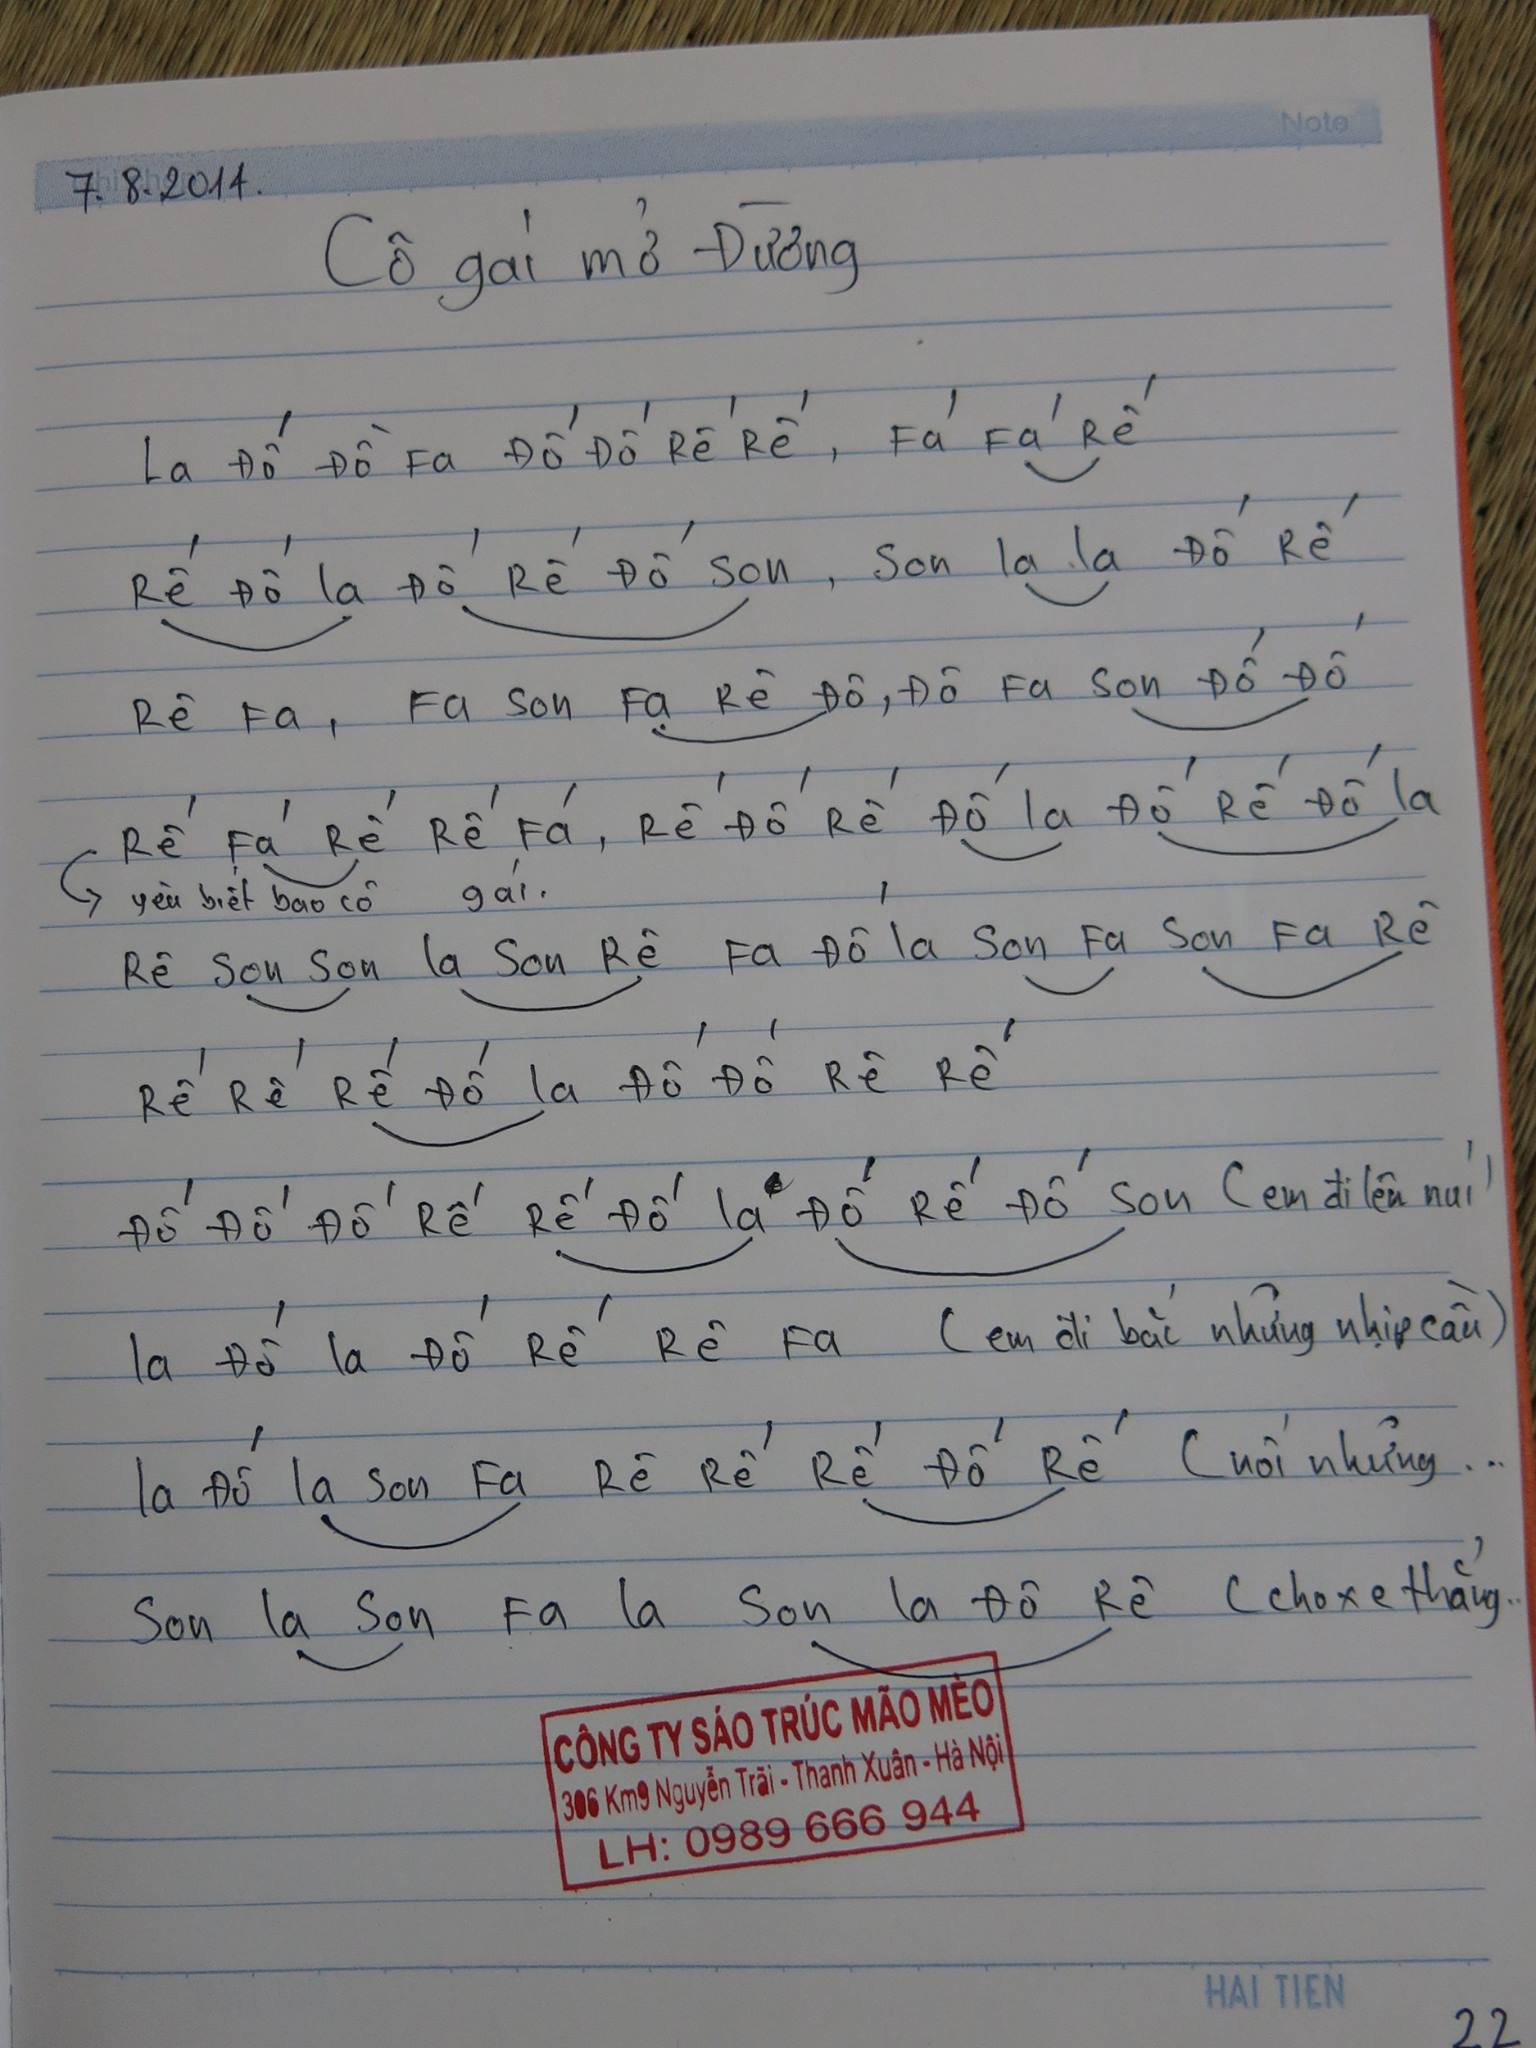 Note
7.8.2014.
Cô gái mở Đường
La Đố Đồ Fa Đố Đố Rế Rế, Fá Fá Rế
Rế Đố la Đố Rế Đố Son, Son la la Đố Rế
Rê Fa, Fa Son Fa Rê Đô, Đô Fa Son Đố Đố
Rế Fá Rế Rế Fá, Rế Đố Rế Đố la Đố Rế Đố la
yêu biết bao cô gái.
Rê Son Son la Son Rê Fa Đố la Son Fa Son Fa Rê
Rế Rế Rế Đố la Đố Đố Rê Rế
Đố Đố Đố Rế Rế Đố la Đố Rế Đố Son (em đi lên núi)
la Đố la Đố Rế Rê Fa (em đi bắc những nhịp cầu)
la Đố la Son Fa Rê Rế Rế Đố Rế (nối những...
Son la Son Fa la Son la Đô Rê (cho xe thẳng..
CÔNG TY SÁO TRÚC MÃO MÈO
306 Km9 Nguyễn Trãi - Thanh Xuân - Hà Nội
LH: 0989 666 944
HAI TIEN
22